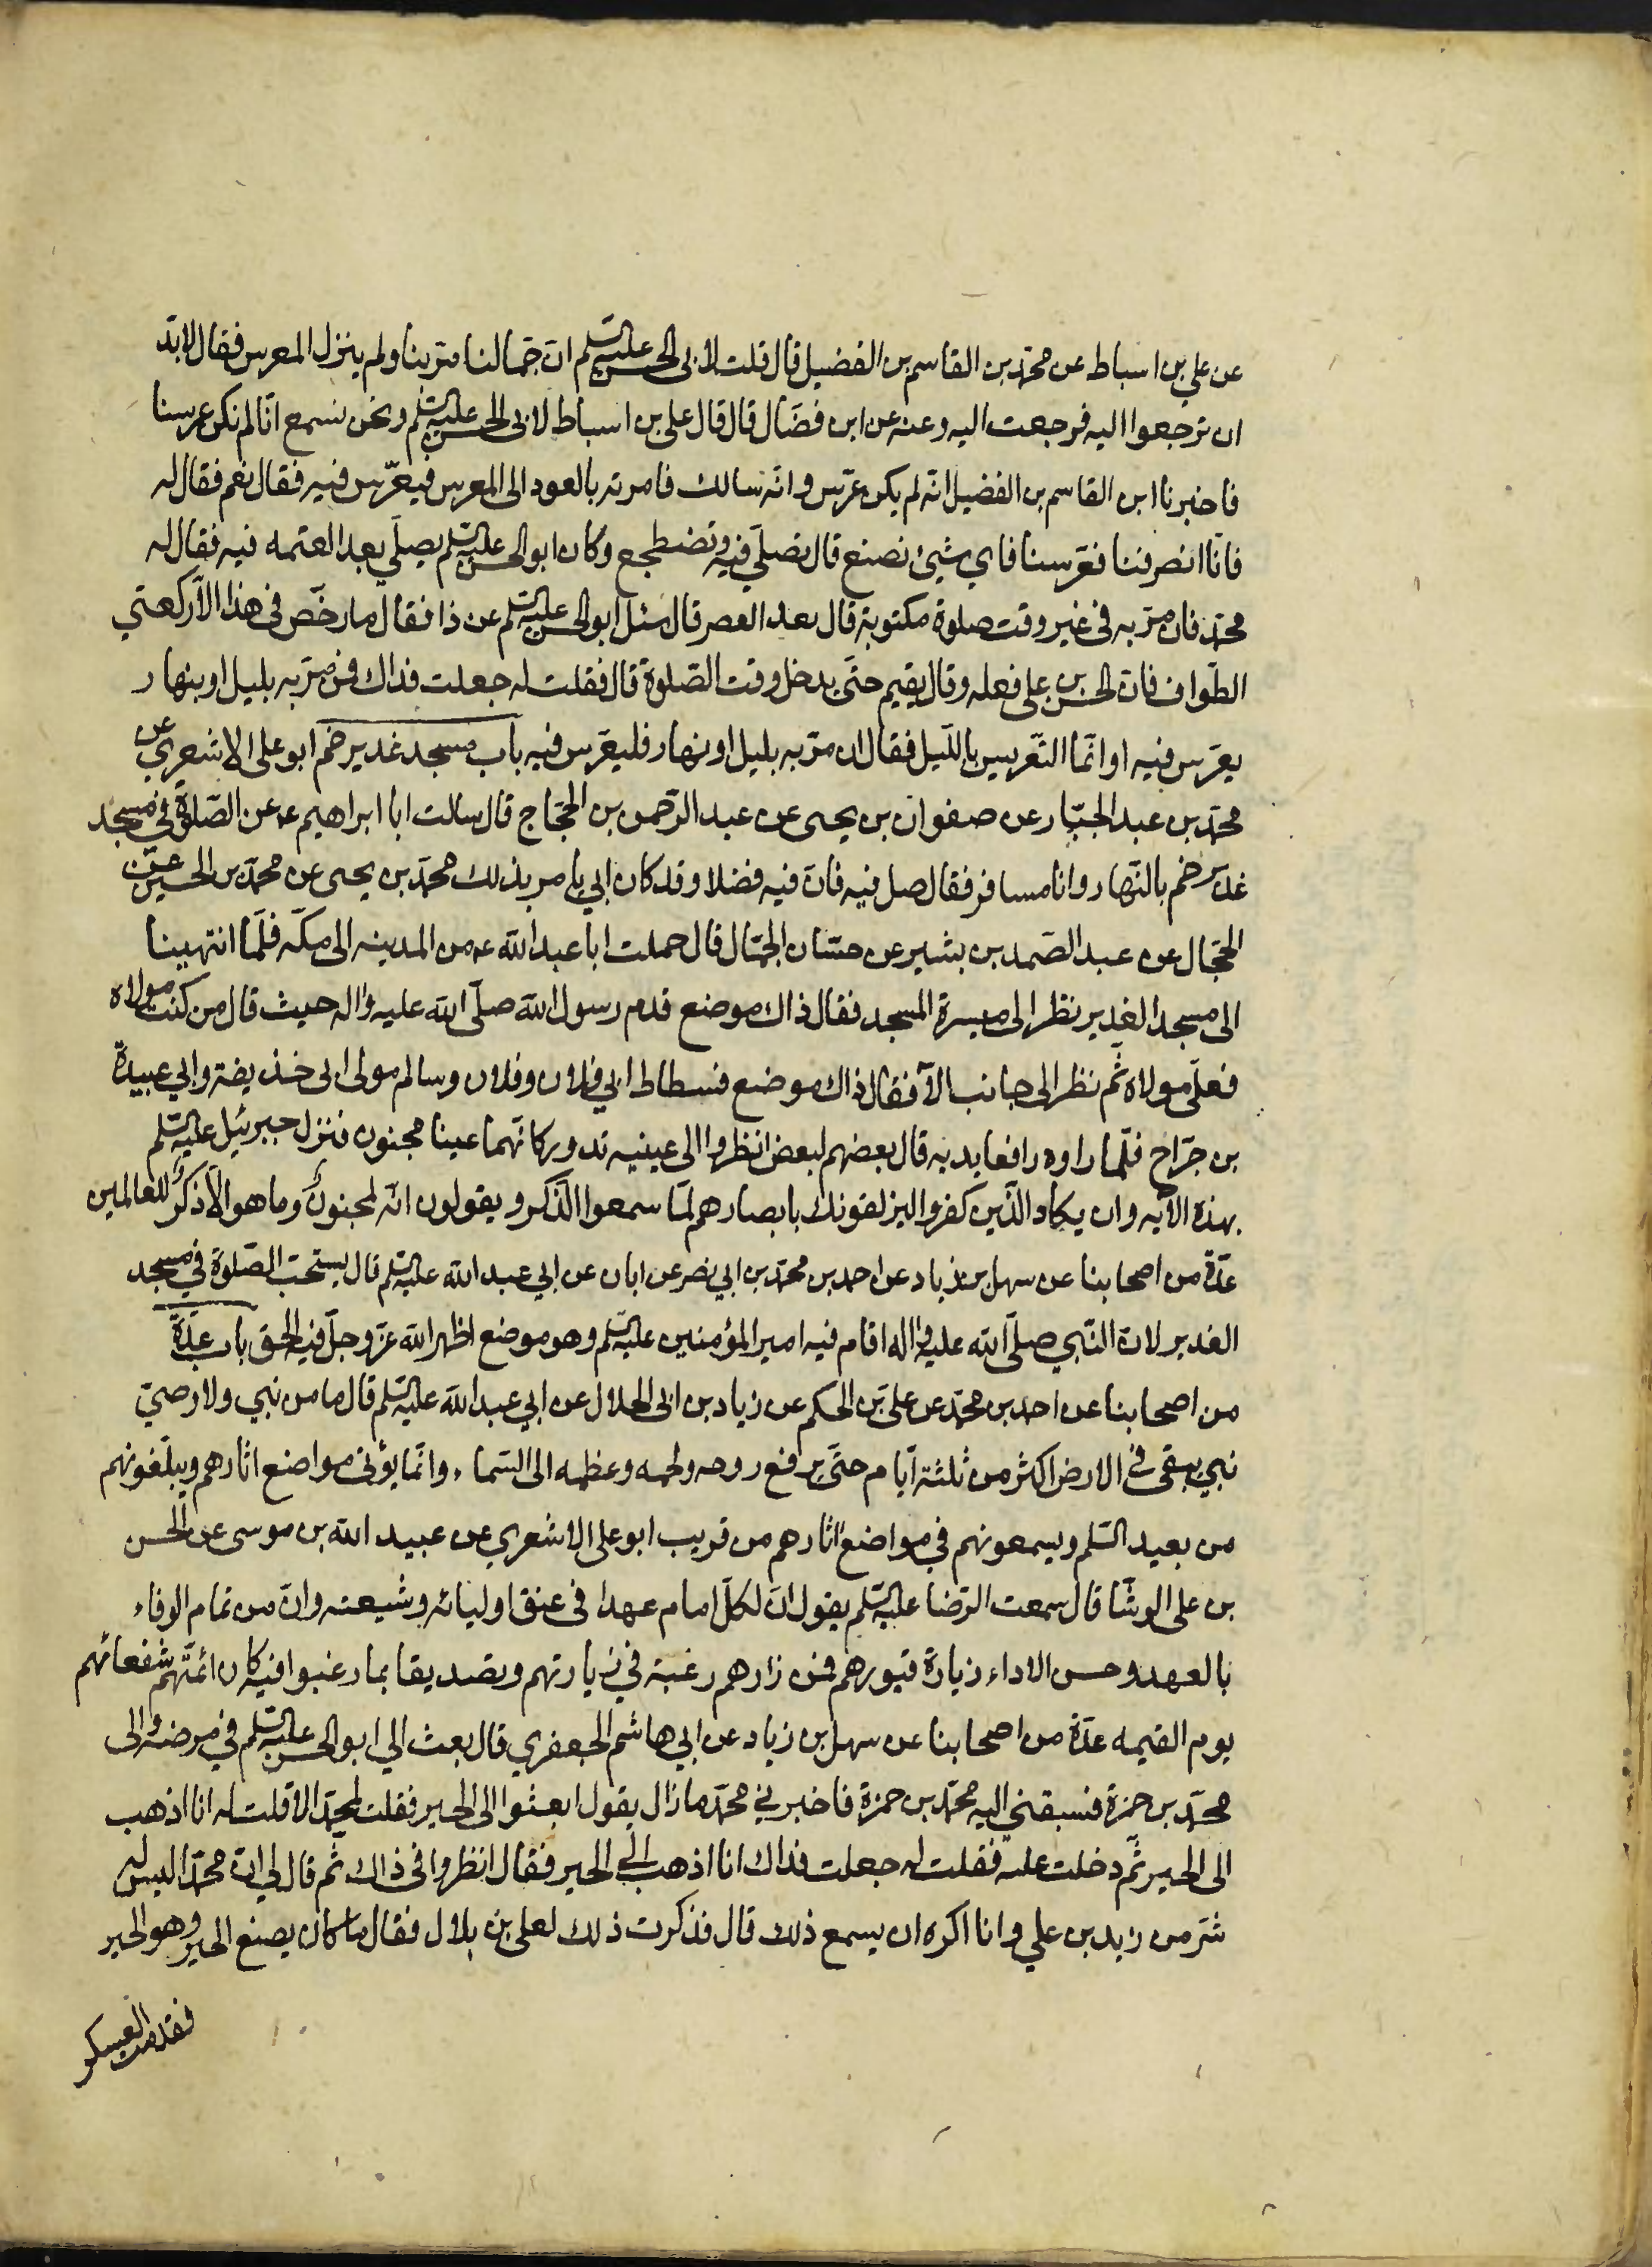 عن علي بن اسباط عن محمد بن القاسم بن الفضيل قال قلت لابى الحسن عليه السلم ان جمالنا مر بنا ولم ينزل المعرس فقال لا بد
ان ترجعوا اليه فرجعت اليه وعنه عن ابن فضال قال قال على بن اسباط لابى الحسن عليه السلم ونحن نسمع انا لم نكن عرسنا
فاخبرنا ابن القاسم بن الفضيل انه لم يكن عرس وانه سالك فامرته بالعود الى المعرس فيعرس فيه فقال نعم فقال له
فانا انصرفنا فعرسنا فاي شيئ نصنع قال تصلي فيه وتضطجع وكان ابو الحسن عليه السلم يصلي بعد العتمه فيه فقال له
محمد فان مر به فى غير وقت صلوة مكتوبة قال بعد العصر قال سئل ابو الحسن عليه السلم عن ذا فقال ما رخص فى هذا الا ركعتي
الطواف فان الحسن بن علي فعله وقال يقيم حتى يدخل وقت الصلوة قال فقلت له جعلت فداك فمن مر به بليل او بنهار
يعرس فيه او انما التعريس بالليل فقال ان مر به بليل او نهار فليعرس فيه باب مسجد غدير خم ابو على الاشعري عن
محمد بن عبد الجبار عن صفوان بن يحيى عن عبد الرحمن بن الحجاج قال سالت ابا ابراهيم ع عن الصلوة في مسجد
غدير خم بالنهار وانا مسافر فقال صل فيه فان فيه فضلا وقد كان ابي يامر بذلك محمد بن يحيى عن محمد بن الحسين عن
الحجال عن عبد الصمد بن بشير عن حسان الجمال قال حملت ابا عبد الله ع من المدينه الى مكه فلما انتهينا
الى مسجد الغدير نظر الى ميسرة المسجد فقال ذاك موضع قدم رسول الله صلى الله عليه واله حيث قال من كنت مولاه
فعلي مولاه ثم نظر الى جانب الآ فقال ذاك موضع فسطاط ابي فلان وفلان وسالم مولى ابى حذيفة وابي عبيدة
بن جراح فلما راوه رافعا يديه قال بعضهم لبعض انظروا الى عينيه تدور كانهما عينا مجنون فنزل جبرئيل عليه السلم
بهذه الآيه وان يكاد الذين كفروا ليزلقونك بابصارهم لما سمعوا الذكر ويقولون انه لمجنون وما هو الا ذكر للعالمين
عدة من اصحابنا عن سهل بن زياد عن احمد بن محمد بن ابي نصر عن ابان عن ابي عبد الله عليه السلم قال يستحب الصلوة في مسجد
الغدير لان النبي صلى الله عليه واله اقام فيه امير المؤمنين عليه السلم وهو موضع اظهر الله عز وجل فيه الحق باب عدة
من اصحابنا عن احمد بن محمد عن على بن الحكم عن زياد بن ابى الحلال عن ابي عبد الله عليه السلم قال ما من نبي ولا وصي
نبي يبقى في الارض اكثر من ثلثة ايام حتى يرفع روحه ولحمه وعظمه الى السماء وانما يؤتى مواضع اثارهم ويبلغونهم
من بعيد السلم ويسمعونهم في مواضع اثارهم من قريب ابو على الاشعري عن عبيد الله بن موسى عن الحسن
بن على الوشا قال سمعت الرضا عليه السلم يقول ان لكل امام عهدا فى عنق اوليائه وشيعته وان من تمام الوفاء
بالعهد وحسن الاداء زيارة قبورهم فمن زارهم رغبة في زيارتهم وتصديقا بما رغبوا فيه كان ائمتهم شفعائهم
يوم القيمه عدة من اصحابنا عن سهل بن زياد عن ابي هاشم الجعفري قال بعث الي ابو الحسن عليه السلم في مرضه والى
محمد بن حمزة فسبقني اليه محمد بن حمزة فاخبرني محمد ما زال يقول ابعثوا الى الحير فقلت لمحمد الا قلت له انا اذهب
الى الحير ثم دخلت عليه فقلت له جعلت فداك انا اذهب الى الحير فقال انظروا فى ذاك ثم قال لي ان محمدا ليس له
شر من زيد بن علي وانا اكره ان يسمع ذلك قال فذكرت ذلك لعلى بن بلال فقال ما كان يصنع الحير وهو الحير
فقدمت العسكر